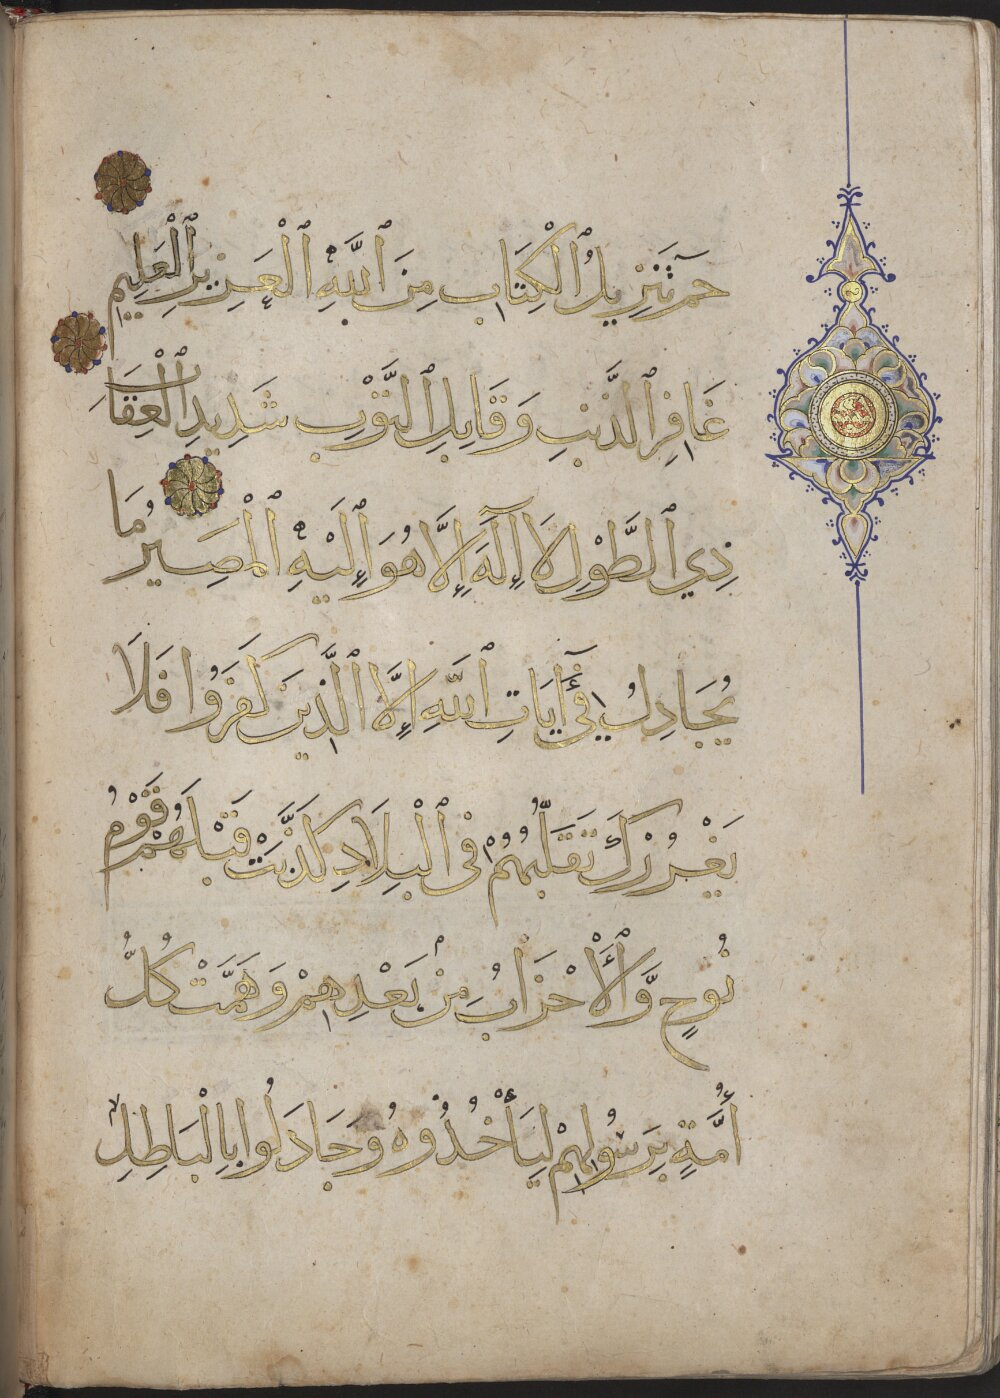 حمٓ تَنزِيلُ ٱلْكِتَابِ مِنَ ٱللَّهِ ٱلْعَزِيزِ ٱلْعَلِيمِ
غَافِرِ ٱلذَّنبِ وَقَابِلِ ٱلتَّوْبِ شَدِيدِ ٱلْعِقَابِ
ذِي ٱلطَّوْلِ لَآ إِلَٰهَ إِلَّا هُوَ إِلَيْهِ ٱلْمَصِيرُ مَا
يُجَادِلُ فِيٓ أَيَاتِ ٱللَّهِ إِلَّا ٱلَّذِينَ كَفَرُوا فَلَا
يَغْرُرْكَ تَقَلُّبُهُمْ فِي ٱلْبِلَادِ كَذَّبَتْ قَبْلَهُمْ قَوْمُ
نُوحٍ وَّٱلْأَحْزَابُ مِنۢ بَعْدِهِمْ وَهَمَّتْ كُلُّ
أُمَّةٍۭ بِرَسُولِهِمْ لِيَأْخُذُوهُ وَجَادَلُوا بِالْبَاطِلِ